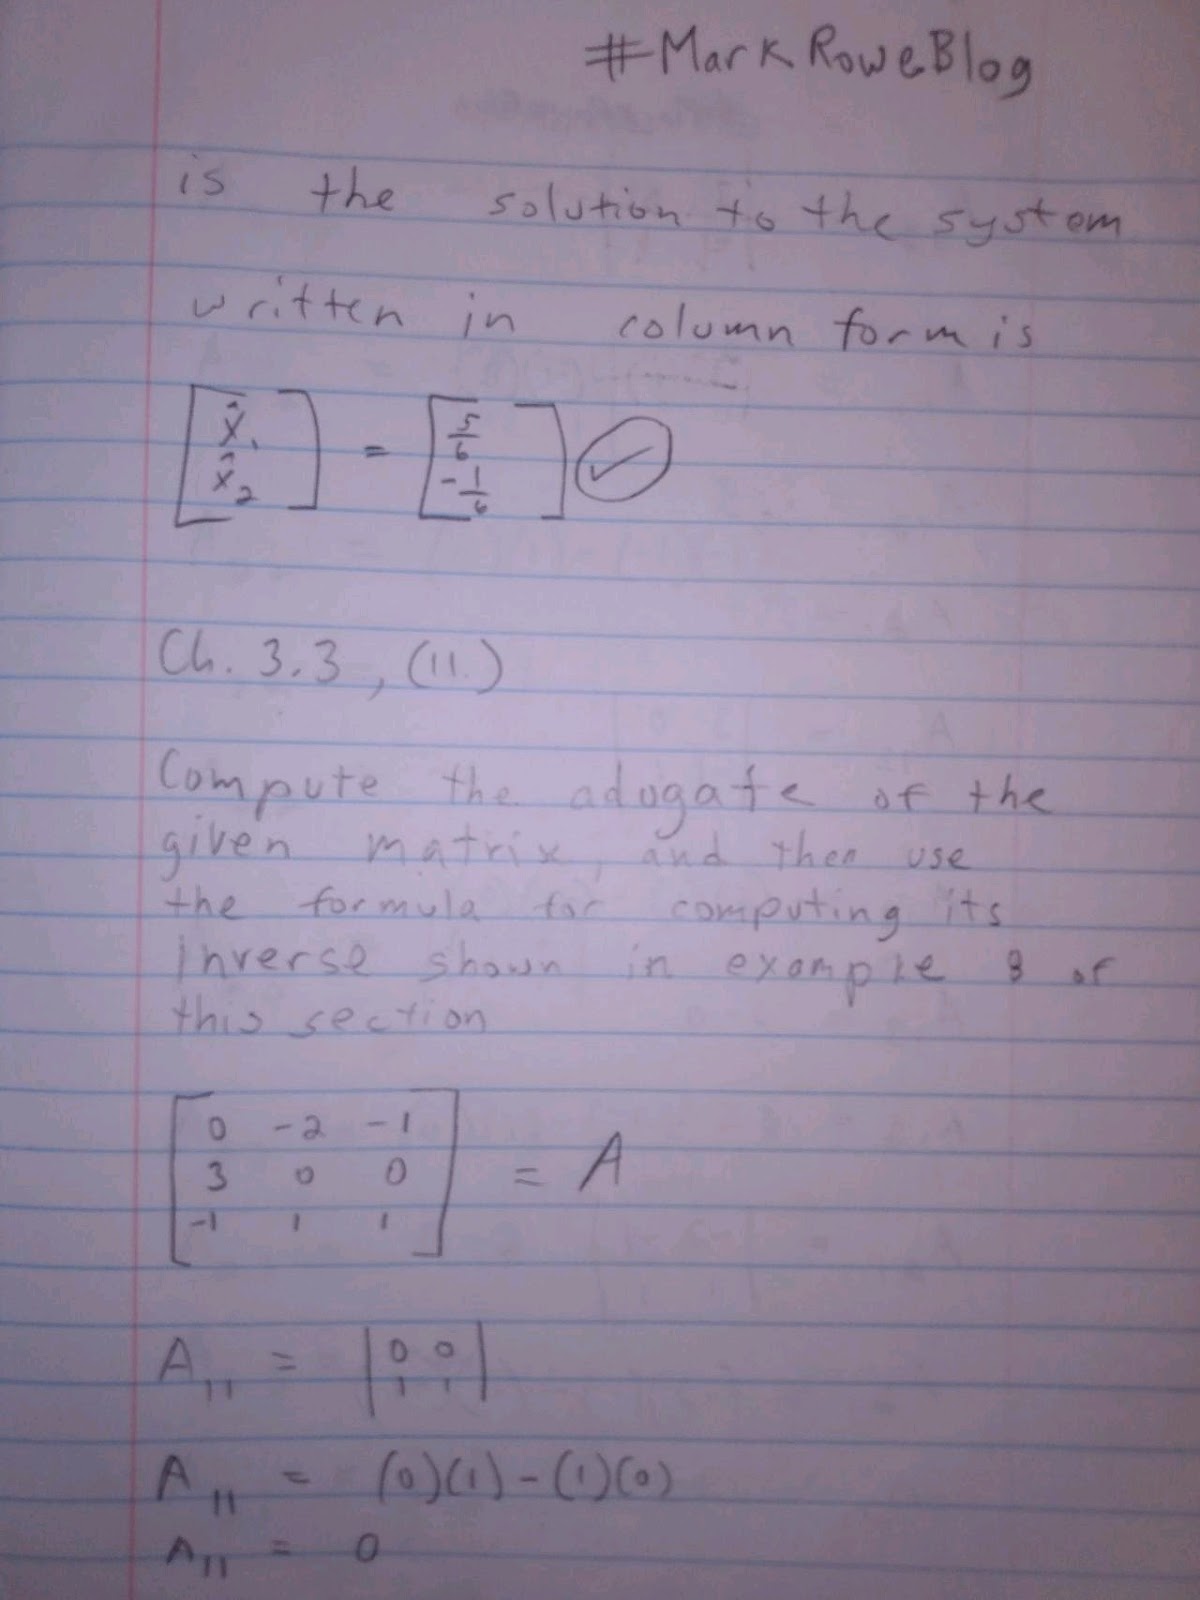 #MarkRoweBlog
is the solution to the system
written in column form is
[x̂₁ x̂₂] = [5/6 -1/6] ✓
Ch. 3.3, (11.)
Compute the adugate of the
given matrix, and then use
the formula for computing its
inverse shown in example 3 of
this section
0 -2 -1
3 0 0 = A
-1 1 1
A₁₁ = |0 0
1 1|
A₁₁ = (0)(1)-(1)(0)
A₁₁ = 0